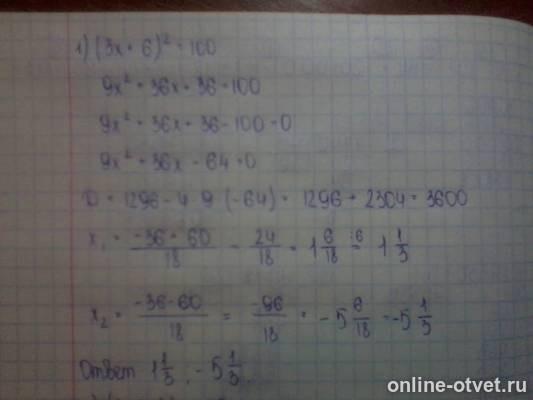 1) (3x + 6)² = 100
9x² + 36x + 36 = 100
9x² + 36x + 36 - 100 = 0
9x² + 36x - 64 = 0
D = 1296 - 4 · 9 · (-64) = 1296 + 2304 = 3600
x₁ = (-36 + 60)/18 = 24/18 = 1 6/18 = 1 1/3
x₂ = (-36 - 60)/18 = -96/18 = -5 6/18 = -5 1/3
Ответ 1 1/3 ; -5 1/3.
online-otvet.ru